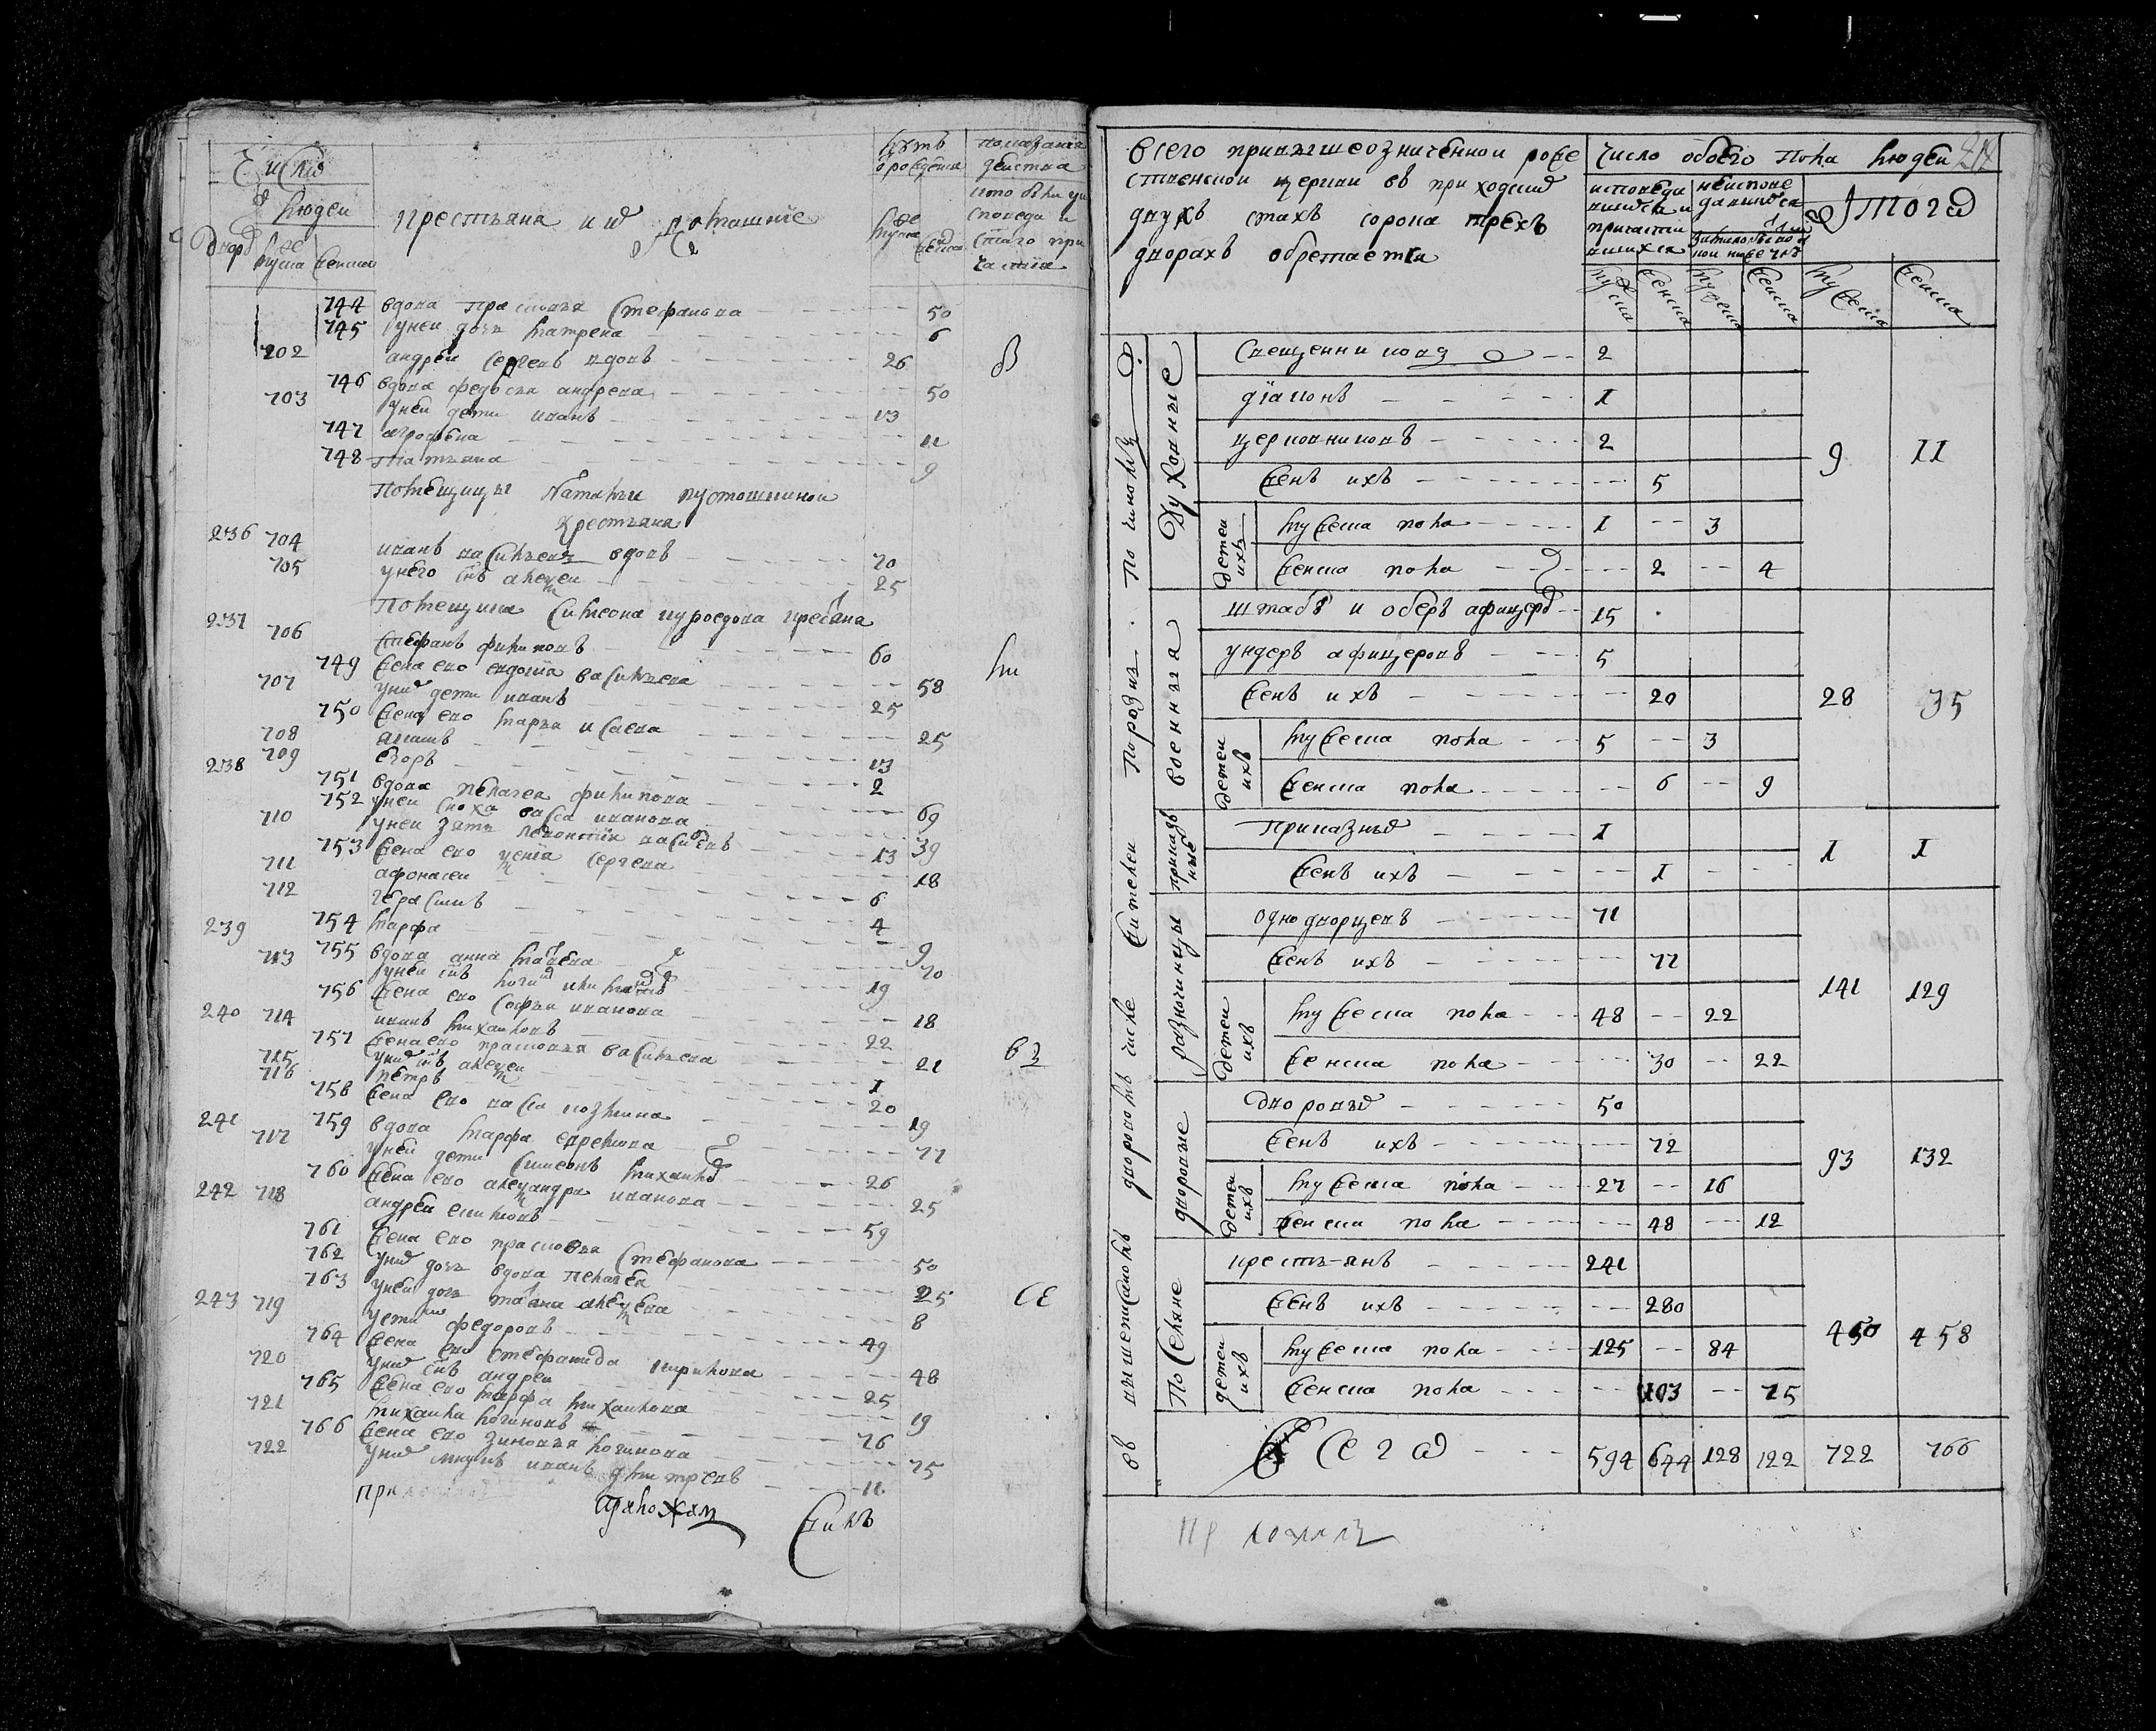 Число
людей
дворо
муска
женска
крестьяна и ихъ домашние
летъ
о рождения
муска
женска
показания
действа
кто были у и
споведи и
святаго при
частия
744 вдова Прасковья Стефанова 50
745 у неи дочь матрена 6
702 андреи Сергеевъ вдовъ 26
746 вдова федосья андреева 50
703 у неи дети иванъ 13
747 агрофена 11
748 Татьяна 9
Помещицы Натальи пустошкинои
крестьяна
236 704 иванъ васильевъ вдовъ 70
705 у него снъ алексеи 25
Помещика Симеона куроедова крестьяна
237 706 Стефанъ филиповъ 60
749 жена ево евдокия васильева 58
707 у нихъ дети иванъ 25
750 жена ево марья исаева 25
708 акимъ 13
709 егоръ 2
238 751 вдова пелагея филипова 69
752 у неи сноха васса иванова 39
710 у неи зять леонтии васильевъ 13
753 жена ево ксения сергеева 18
711 афонасеи 6
712 герасимъ 4
754 марфа 9
239 755 вдова анна матвеева 70
713 у неи снъ 19
756 жена ево софья иванова 18
240 714 иванъ михаиловъ 22
757 жена ево прасковья васильева 21
715 у нихъ снъ алексеи 1
716 петръ 20
758 жена ево васса козмина 19
241 759 вдова марфа ефремова 77
717 у неи дети симеонъ михаиловъ 26
760 жена ево александра иванова 25
242 718 андреи 59
761 жена ево прасковья Стефанова 50
762 у нихъ дочь вдова пелагея 25
763 у неи дочь татьяна алексеева 8
243 719 федоровъ 49
764 жена ево Стефанида кирилова 48
720 у нихъ снъ андреи 25
765 жена ево марфа михаилова 19
721 михаила логиновъ 76
766 жена ево зиновья логинова 75
722 у нихъ внукъ иванъ дмитреевъ 11
приложилъ
Всего при вышеозначеннои роже
ственскои церкви въ приходскихъ
двухъ стахъ сорока трехъ
дворахъ обретается
Число обоего пола людеи
исповеда
вшихся и
причасти
вшихся
неиспове
давшихся
Итого
муска женска муска женска мужеска женска
въ вышеписаномъ дворовомъ числе жителеи Порознь . По чиномъ
Духовныя
Священниковъ 2
диаконъ 1
церковниковъ 2
женъ ихъ 5
детеи ихъ
мужеска пола 1 3
женска пола 2 4
9 11
военныя
штабъ и оберъ афицеровъ 15
ундеръ афицеровъ 5
женъ ихъ 20
детеи ихъ
мужеска пола 5 3
женска пола 6 9
28 35
приказные
Приказныхъ 1
женъ ихъ 1
1 1
разночинцы
однодворцевъ 71
женъ ихъ 77
детеи ихъ
мужеска пола 48 22
женска пола 30 22
141 129
дворовые
дворовыхъ 50
женъ ихъ 72
детеи ихъ
мужеска пола 27 16
женска пола 48 12
93 132
Поселяне
крестьянъ 241
женъ ихъ 280
детеи ихъ
мужеска пола 125 84
женска пола 103 75
450 458
Всего 594 644 128 122 722 766